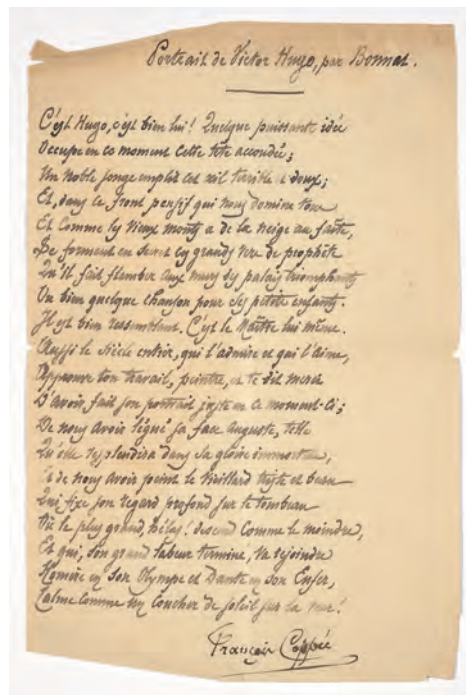 Portrait de Victor Hugo, par Bonnat.
C'est Hugo, c'est bien lui! Quelque puissante idée
Occupe en ce moment cette tête accoudée;
Un noble songe emplit cet œil terrible et doux;
Et, dans ce front pensif qui nous domine tous
Et comme les vieux monts a de la neige au faîte,
Se forment en secret ces grands vers de prophète
Qu'il fait flamber aux murs des palais triomphants
Ou bien quelque chanson pour ses petits enfants.
Il est bien ressemblant. C'est le Maître lui même.
Aussi le siècle entier, qui l'admire et qui l'aime,
Approuve ton travail, peintre, et te dit merci
D'avoir fait son portrait juste en ce moment-ci;
De nous avoir légué sa face auguste, telle
Qu'elle resplendira dans sa gloire immortelle,
Et de nous avoir peint le vieillard triste et beau
Qui fixe son regard profond sur le tombeau
Où le plus grand, hélas! descend comme le moindre,
Et qui, son grand labeur terminé, va rejoindre
Homère en son Olympe et Dante en son Enfer,
Calme comme un coucher de soleil sur la mer!
François Coppée